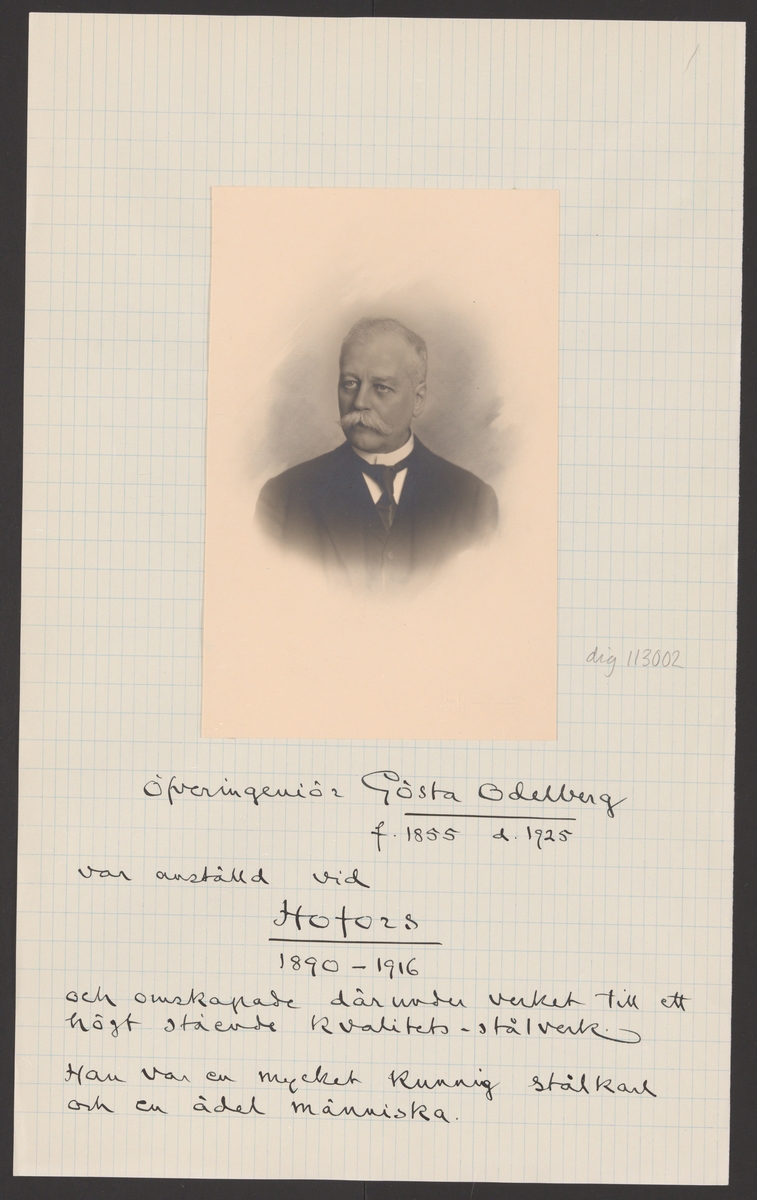 dig 113002
Öfveringeniör Gösta Odelberg
f. 1855 d. 1925
var anställd vid
Hofors
1890 – 1916
och omskapade därunder verket till ett
högt stående kvalitets-stålverk.
Han var en mycket kunnig stålkarl
och en ädel människa.